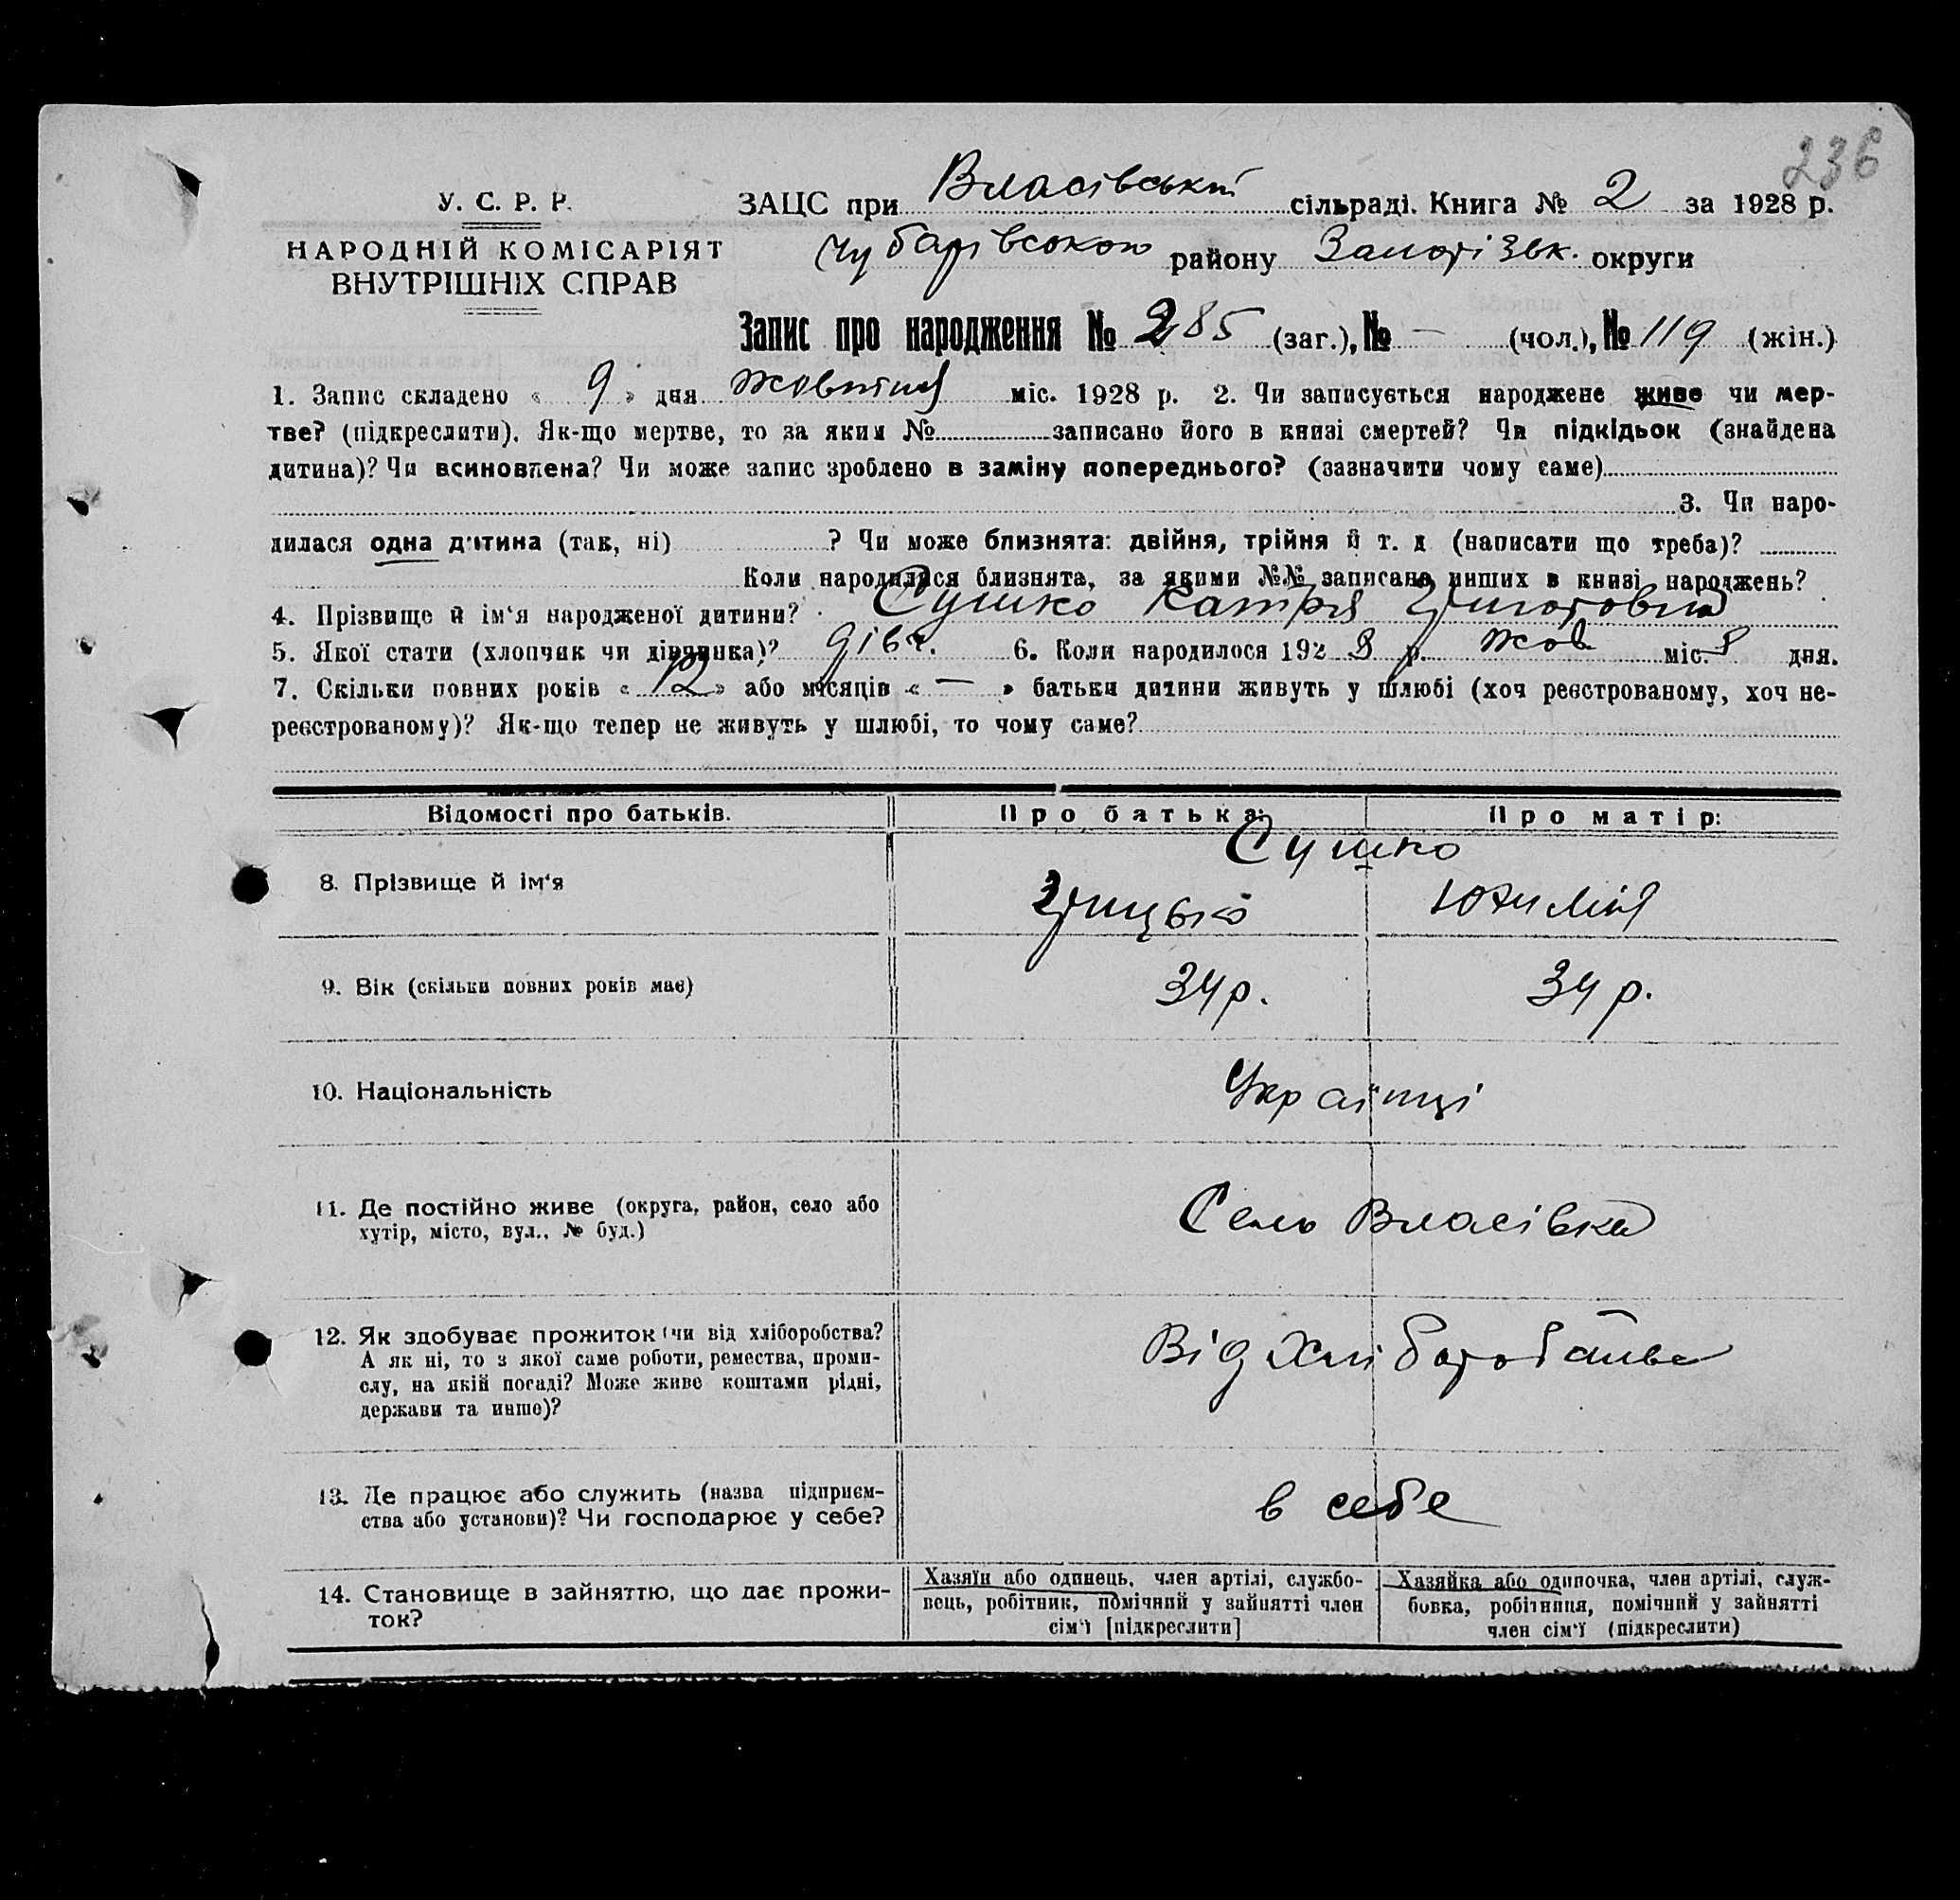 236
У. С. Р. Р.
НАРОДНІЙ КОМІСАРІЯТ
ВНУТРІШНІХ СПРАВ
ЗАЦС при Власівській сільраді. Книга № 2 за 1928 р.
Чубарівського району Запорізьк. округи
Запис про народження № 285 (заг.), № — (чол.), № 119 (жін.)
1. Запис складено « 9 » дня жовтня міс. 1928 р. 2. Чи записується народжене живе чи мер-
тве? (підкреслити). Як-що мертве, то за яким № записано його в книзі смертей? Чи підкідьок (знайдена
дитина)? Чи всиновлена? Чи може запис зроблено в заміну попереднього? (зазначити чому саме)
3. Чи наро-
дилася одна дитина (так, ні) ? Чи може близнята: двійня, трійня й т. д (написати що треба)?
Коли народилися близнята, за якими №№ записано инших в книзі народжень?
4. Прізвище й ім'я народженої дитини? Сушко Катря Григоровна
5. Якої стати (хлопчик чи дівчинка)? дівч. 6. Коли народилося 1928 р. жов міс. 8 дня.
7. Скільки повних років « 12 » або місяців « — » батьки дитини живуть у шлюбі (хоч реєстрованому, хоч не-
реєстрованому)? Як-що тепер не живуть у шлюбі, то чому саме?
Відомості про батьків. Про батька: Про матір:
Сушко
8. Прізвище й ім'я Грицько
9. Вік (скільки повних років має) 34 р. 34 р.
10. Національність Українці
11. Де постійно живе (округа, район, село або
хутір, місто, вул., № буд.) Село Власівка
12. Як здобуває прожиток (чи від хліборобства?
А як ні, то з якої саме роботи, ремества, проми-
слу, на якій посаді? Може живе коштами рідні,
держави та инше)? Від Хліборобства
13. Де працює або служить (назва підприєм-
ства або установи)? Чи господарює у себе? в себе
14. Становище в зайняттю, що дає прожи-
ток?
Хазяїн або одинець, член артілі, службо-
вець, робітник, помічний у зайнятті член
сім'ї [підкреслити]
Хазяйка або одиночка, член артілі, служ-
бовка, робітниця, помічний у зайнятті
член сім'ї (підкреслити)